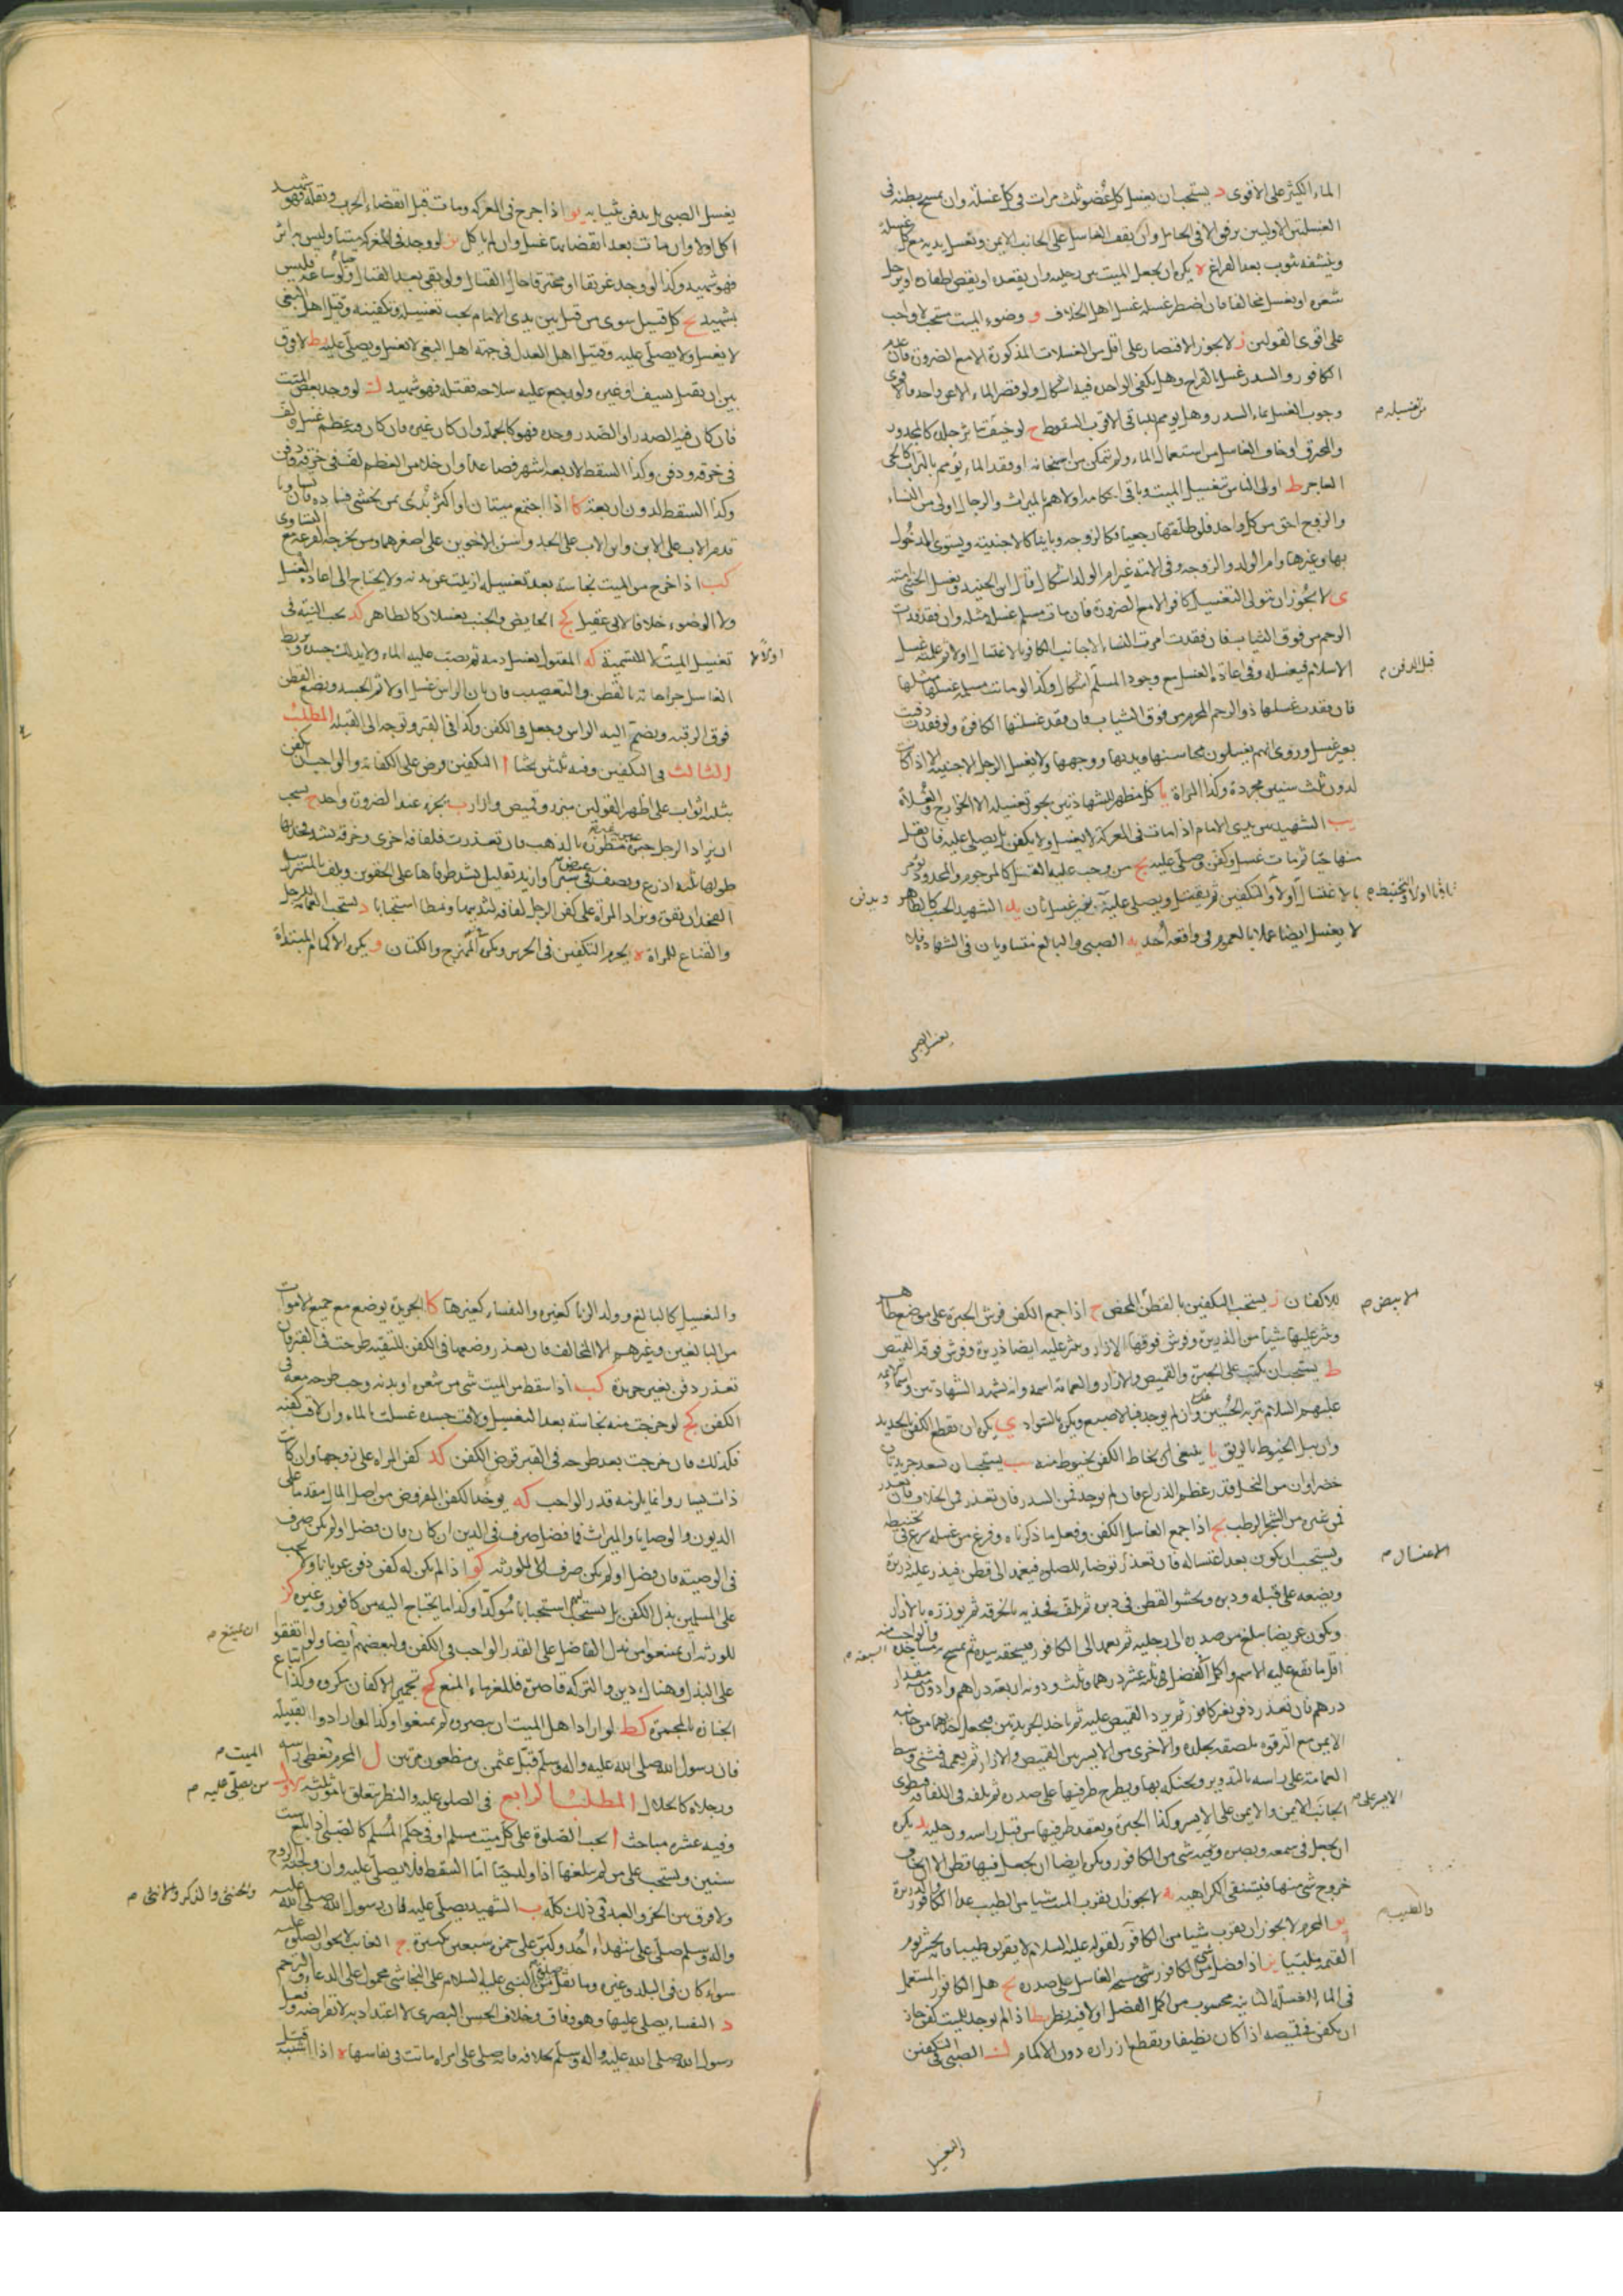 الماء الكثير على الاقوى د يستحب ان يغسل كل عضو ثلث مرات في كل غسلة وان يمسح بطنه في
الغسلتين الاوليين برفق الا في الحامل وان يقف الغاسل على الجانب الايمن ويغسل يديه مع كل غسلة
وينشفه بثوب بعد الفراغ ه يكره ان يجعل الميت بين رجليه وان يقعده او يقص اظفاره او يرجل
شعره او يغسل مخالفا فان اضطر غسله غسل اهل الخلاف و وضوء الميت مستحب لا واجب
على اقوى القولين ز لا يجوز الاقتصار على اقل من الغسلات المذكورة الا مع الضرورة فان عدم
الكافور والسدر غسل بالقراح وهل يكفي الواحدة فيه اشكال ولو قصر الماء الا عن واحدة فالاقوى
وجوب الغسل بماء السدر وهل يومم بالباقي الاقرب السقوط ح لو خيف تناثر جلده كالمجدور
من تغسيله م
والمحرق او خاف الغاسل من استعمال الماء ولم يتمكن من اسخانه او فقد الماء يؤمم بالتراب كالحي
العاجز ط اولى الناس بتغسيل الميت وباقي احكامه اولاهم بالميراث والرجال اولى من النساء
والزوج احق من كل واحد فلو طلقها رجعيا فكالزوجة وباينا كالاجنبية ويستوى المدخول
بها وغيرها وام الولد والزوجة وفي الامة غير ام الولد اشكال قال ابن الجنيد ويغسل الخنثى امته
ى لا يجوز ان يتولى التغسيل كافر الا مع الضرورة فان مات مسلم غسله مثله وان فقد فذات
الرحم من فوق الثياب فان فقدت امرت النساء الاجانب الكافر بالاغتسال اولا ثم علمنه غسل
الاسلام فيغسله وفي اعادة الغسل مع وجود المسلم اشكال وكذا لو ماتت مسلمة غسلها مثلها
قبل الدفن م
فان فقدت غسلها ذو الرحم المحرم من فوق الثياب فان فقد غسلتها الكافرة ولو فقدت دفنت
بغير غسل وروى انهم يغسلون محاسنها ويديها ووجهها ولا يغسل الرجل الاجنبية الا اذا كانت
لدون ثلث سنين مجردة وكذا المراة يا كل مظهر للشهادتين يجوز تغسيله الا الخوارج والغلاة
يب الشهيد بين يدى الامام اذا مات في المعركة لا يغسل ولا يكفن بل يصلى عليه فان نقل
منها حيا ثم مات غسل وكفن وصلى عليه يج من وجب عليه القتل كالمرجوم والمحدود يؤمر
بالاغتسال اولا والتكفين ثم يقتل ويصلى عليه بغير غسل ثان يد الشهيد الجنب كالطاهر
ويدفن
لا يغسل ايضا عملا بالعموم في واقعة احد يه الصبي والبالغ متساويان في الشهادة فلا
يغسل الصبى
يغسل الصبي بل يدفن بثيابه يو اذا جرح في المعركة ومات قبل انقضاء الحرب ونقله فهو شهيد
اكل او لا وان مات بعد انقضائها غسل وان لم ياكل يز لو وجد في المعركة ميتا وليس به اثر
فهو شهيد وكذا لو وجد غريقا او محترقا حال القتال ولو بقي بعد القتال حيا ولو ساعة فليس
بشهيد يح كل قتيل سوى من قتل بين يدى الامام يجب تغسيله وتكفينه وقتيل اهل البغي
لا يغسل ولا يصلى عليه وقتيل اهل العدل في جهة اهل البغي لا يغسل ويصلى عليه يط لا فرق
بين ان يقتل بسيف او غيره ولو رجع عليه سلاحه فقتله فهو شهيد ك لو وجد بعض الميت
فان كان فيه الصدر او الصدر وحده فهو كالجملة وان كان غيره فان كان فيه عظم غسل ولف
في خرقة ودفن وكذا السقط لاربعة اشهر فصاعدا وان خلا من العظم لف في خرقة ودفن
وكذا السقط لدون اربعة كا اذا اجتمع ميتان او اكثر بدئ بمن يخشى فساده فان تساويا
قدم الاب على الابن وابن الاب على الجد واسن الاخوين على اصغرهما ومن يخرجه القرعة مع التساوى
كب اذا خرج من الميت نجاسة بعد تغسيله ازيلت عن بدنه ولا يحتاج الى اعادة الغسل
ولا الوضوء خلافا لابن ابي عقيل كج الحايض والجنب يغسلان كالطاهر كد يجب النية في
تغسيل الميت لا التسمية كه المقتول يغسل دمه ثم يصب عليه الماء ولا يدلك جسده ويربط
اولا م
الغاسل جراحاته بالقطن والتعصيب فان بان الراس غسل اولا ثم الجسد ويضع القطن
فوق الرقبة ويضم اليه الراس وجعل في الكفن وكذا في القبر ويوجه الى القبلة المطلب
الثالث في التكفين وفيه ثلثون بحثا ا التكفين فرض على الكفاية والواجب ان يكفن
بثلثة اثواب على اظهر القولين مئزر وقميص وازار ب يجزى عند الضرورة واحد ج يستحب
ان يزاد الرجل حبرة عبرية غير مطرزة بالذهب فان تعذرت فلفافة اخرى وخرقة تشد فخذيه بها
طولها ثلثة اذرع ونصف في عرض شبر او ازيد بقليل يشد طرفاها على الحقوين ويلف بالمسترسل
الفخذان بقوة ويزاد المراة على كفن الرجل لفافة لثدييها ونمطا استحبابا د يستحب العمامة للرجل
والقناع للمراة ه يحرم التكفين في الحرير ويكره الممتزج والكتان و يكره الاكمام المبتداة
للاكفان ز يستحب التكفين بالقطن المحض ح اذا جمع الكفن فرش الحبرة على موضع طاهر
الابيض م
ونثر عليها شيئا من الذريرة وفرش فوقها الازار ونثر عليه ايضا ذريرة وفرش فوقه القميص
ط يستحب ان يكتب على الحبرة والقميص والازار والعمامة اسمه وانه يشهد الشهادتين واسماء الائمة
عليهم السلام بتربة الحسين وان لم يوجد فبالاصبع ويكره بالسواد ي يكره ان يقطع الكفن بالحديد
وان يبل الخيوط بالريق يا ينبغى ان يخاط الكفن بخيوط منه يب يستحب ان يستعد جريدتان
خضراوان من النخل قدر عظم الذراع فان لم يوجد فمن السدر فان تعذر فمن الخلاف فان تعذر
فمن غيره من الشجر الرطب يج اذا جمع الغاسل الكفن وفعل ما ذكرناه وفرغ من غسله شرع في تحنيطه
ويستحب ان يكون بعد اغتساله فان تعذر توضا للصلوة فيعمد الى قطن فيذر عليه ذريرة
الاغتسال م
ويضعه على قبله ودبره ويحشو القطن في دبره ثم يلف فخذيه بالخرقة ثم يوزره بالازار
ويكون عريضا يبلغ من صدره الى رجليه ثم يعمد الى الكافور فيسحقه بيده ثم يمسح مساجده والواجب منه
السبعة م
اقل ما يقع عليه الاسم واكمل الفضل ثلثة عشر درهما وثلث ودونه اربعة دراهم وادون مقدار
درهم فان تعذر دفن بغير كافور ثم يرد القميص عليه ثم ياخذ الجريدتين فيجعل احدهما من جانبه
الايمن مع الترقوة يلصقه بجلده والاخرى من الايسر بين القميص والازار ثم يعممه فيثنى وسط
العمامة على راسه بالتدوير ويحنكه بها ويطرح طرفيها على صدره ثم يلفه في اللفافة فيطوى
الجانب الايمن والايمن على الايسر وكذا الحبرة ويعقد طرفيها من قبل راسه ورجليه يد يكره
الايسر على م
ان يجعل في سمعه وبصره وفيه شئ من الكافور ويكره ايضا ان يجعل فيها قطن الا ان يخاف
خروج شئ منها فينتفى الكراهية يه لا يجوز ان يقرب الميت شيئا من الطيب عدا الكافور والذريرة
يو المحرم لا يجوز ان يقرب شيئا من الكافور لقوله عليه السلام لا يقربوه طيبا فانه يحشر يوم
والطيب م
القيمة ملبيا يز اذا فضل من الكافور شئ مسح الغاسل على صدره يح هل الكافور المستعمل
في الماء الغسلة الثانية محسوب من اكمل الفضل او لا فيه نظر يط اذا لم يوجد للميت كفن جاز
ان يكفن في قميصه اذا كان نظيفا ويقطع ازراره دون الاكمام ك الصبي في التكفين
والتغسيل
والتغسيل كالبالغ وولد الزنا كغيره والنفساء كغيرها كا الجريدة يوضع مع جميع الاموات
من البالغين وغيرهم الا المخالف فان تعذر وضعها في الكفن للتقية طرحت في القبر فان
تعذر دفن بغير جريدة كب اذا سقط من الميت شئ من شعره او بدنه وجب طرحه معه في
الكفن كج لو خرجت منه نجاسة بعد التغسيل ولاقت جسده غسلت بالماء وان لاقت كفنه
فكذلك فان خرجت بعد طرحه في القبر قرض الكفن كد كفن المراة على زوجها وان كانت
ذات يسار وانما يلزمه قدر الواجب كه يوخذ الكفن المفروض من اصل المال مقدما على
الديون والوصايا والميراث فما فضل صرف في الدين ان كان فان فضل او لم يكن صرف
في الوصية فان فضل او لم يكن صرف الى الورثة كو اذا لم يكن له كفن دفن عريانا ولا يجب
على المسلمين بذل الكفن بل يستحب لهم استحبابا مؤكدا وكذا ما يحتاج اليه من كافور وغيره كز
للورثة ان يمتنعوا من بذل الفاضل على القدر الواجب في الكفن ولبعضهم ايضا ولو اتفقوا
ان يمتنع م
على البذل وهناك دين والتركة قاصرة فللغرماء المنع كح تجمير الاكفان مكروه وكذا اتباع
الجنازة بالمجمرة كط لو اراد اهل الميت ان يبصروه لم يمنعوا وكذا لو ارادوا تقبيله
فان رسول الله صلى الله عليه واله وسلم قبل عثمن بن مظعون مرتين ل المحرم تغطى راسه
الميت م
ورجلاه كالحلال المطلب الرابع في الصلوة عليه والنظر يتعلق بامور ثلثة الاول
من يصلى عليه م
وفيه عشرة مباحث ا تجب الصلوة على كل ميت مسلم او في حكم المسلم كالصبى اذا بلغ ست
سنين ويستحب على من لم يبلغها اذا ولد حيا اما السقط فلا يصلى عليه وان ولجته الروح
ولا فرق بين الحر والعبد في ذلك كله ب الشهيد يصلى عليه فان رسول الله صلى الله عليه
والخنثى والذكر والانثى م
واله وسلم صلى على شهداء احد وكبر على حمزة سبعين تكبيرة ج الغايب لا يجوز الصلوة عليه
سواء كان في البلد وغيره وما نقل من صلوة النبي عليه السلام على النجاشى محمول على الدعاء والترحم
د النفساء يصلى عليها وهو وفاق وخلاف الحسن البصرى لا اعتداد به لانقراضه وفعل
رسول الله صلى الله عليه واله وسلم بخلافه فانه صلى على امراة ماتت في نفاسها ه اذا اشتبه قتيل